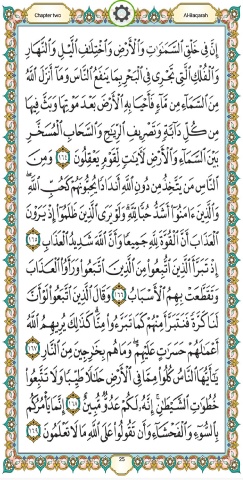 Chapter two
Al-Baqarah
إِنَّ فِي خَلْقِ السَّمَٰوَٰتِ وَالْأَرْضِ وَاخْتِلَٰفِ الَّيْلِ وَالنَّهَارِ
وَالْفُلْكِ الَّتِي تَجْرِي فِي الْبَحْرِ بِمَا يَنفَعُ النَّاسَ وَمَا أَنزَلَ اللَّهُ
مِنَ السَّمَاءِ مِن مَّاءٍ فَأَحْيَا بِهِ الْأَرْضَ بَعْدَ مَوْتِهَا وَبَثَّ فِيهَا
مِن كُلِّ دَابَّةٍ وَتَصْرِيفِ الرِّيَٰحِ وَالسَّحَابِ الْمُسَخَّرِ
بَيْنَ السَّمَاءِ وَالْأَرْضِ لَءَايَٰتٍ لِّقَوْمٍ يَعْقِلُونَ ١٦٤ وَمِنَ
النَّاسِ مَن يَتَّخِذُ مِن دُونِ اللَّهِ أَندَادًا يُحِبُّونَهُمْ كَحُبِّ اللَّهِ
وَالَّذِينَ ءَامَنُوا أَشَدُّ حُبًّا لِّلَّهِ وَلَوْ يَرَى الَّذِينَ ظَلَمُوا إِذْ يَرَوْنَ
الْعَذَابَ أَنَّ الْقُوَّةَ لِلَّهِ جَمِيعًا وَأَنَّ اللَّهَ شَدِيدُ الْعَذَابِ ١٦٥
إِذْ تَبَرَّأَ الَّذِينَ اتُّبِعُوا مِنَ الَّذِينَ اتَّبَعُوا وَرَأَوُا الْعَذَابَ
وَتَقَطَّعَتْ بِهِمُ الْأَسْبَابُ ١٦٦ وَقَالَ الَّذِينَ اتَّبَعُوا لَوْ أَنَّ
لَنَا كَرَّةً فَنَتَبَرَّأَ مِنْهُمْ كَمَا تَبَرَّءُوا مِنَّا كَذَٰلِكَ يُرِيهِمُ اللَّهُ
أَعْمَٰلَهُمْ حَسَرَٰتٍ عَلَيْهِمْ وَمَا هُم بِخَٰرِجِينَ مِنَ النَّارِ ١٦٧
يَٰأَيُّهَا النَّاسُ كُلُوا مِمَّا فِي الْأَرْضِ حَلَٰلًا طَيِّبًا وَلَا تَتَّبِعُوا
خُطُوَٰتِ الشَّيْطَٰنِ إِنَّهُ لَكُمْ عَدُوٌّ مُّبِينٌ ١٦٨ إِنَّمَا يَأْمُرُكُم
بِالسُّوءِ وَالْفَحْشَاءِ وَأَن تَقُولُوا عَلَى اللَّهِ مَا لَا تَعْلَمُونَ ١٦٩
25